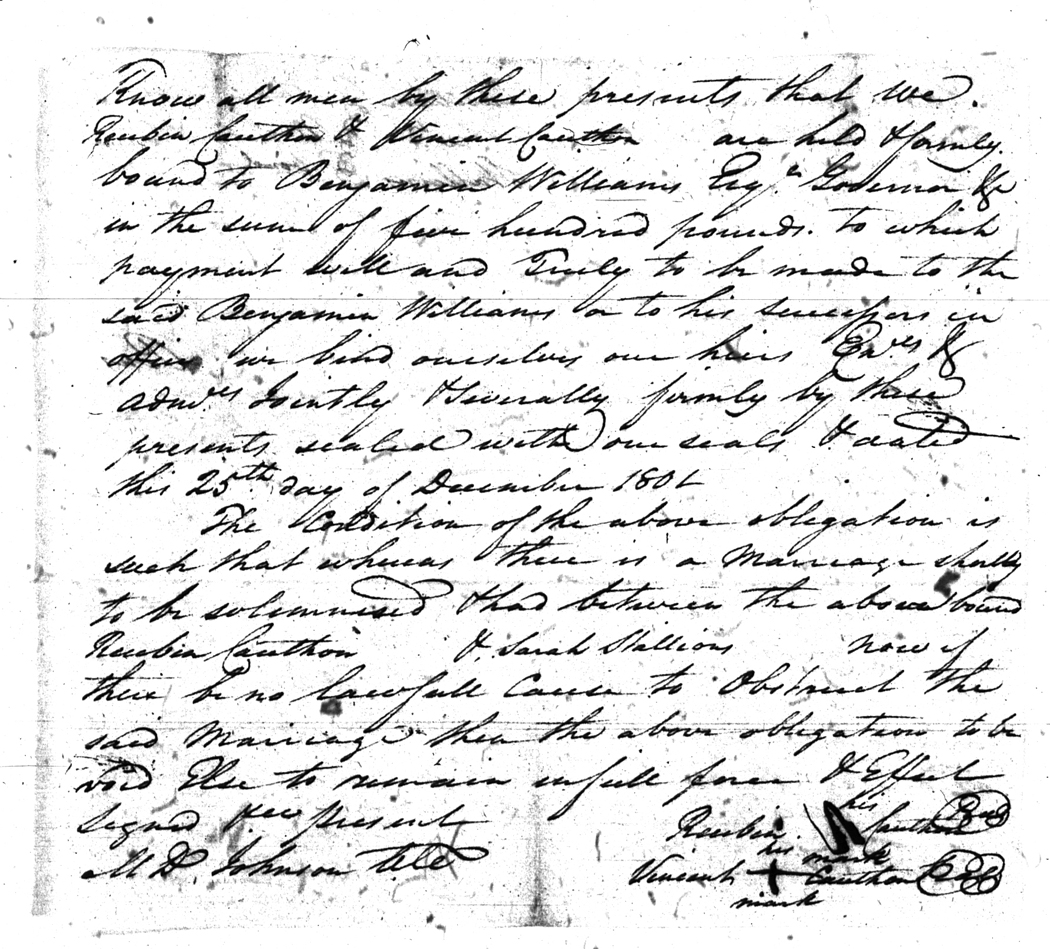 Know all men by these presents that we
Reubin Cauthon & Vincent Cauthon are held & firmly
bound to Benjamin Williams Esqr Governor &c
in the sum of five hundred pounds. to which
payment will and Truly to be made to the
said Benjamin Williams or to his successors in
office we bind ourselves our heirs Exrs &
admrs Jointly & Severally firmly by these
presents sealed with our seals & dated
this 25th day of December 1801
The Condition of the above obligation is
such that whereas there is a Marriage shortly
to be solemnised & had between the above bound
Reubin Cauthon & Sarah Stallions now if
their be no lawfull Cause to Obstruct the
said Marriage then the above obligation to be
void Else to remain in full force & Effect
Signed present
M D. Johnson
Reubin his mark Cauthon Seal
Vincent his mark Cauthon Seal